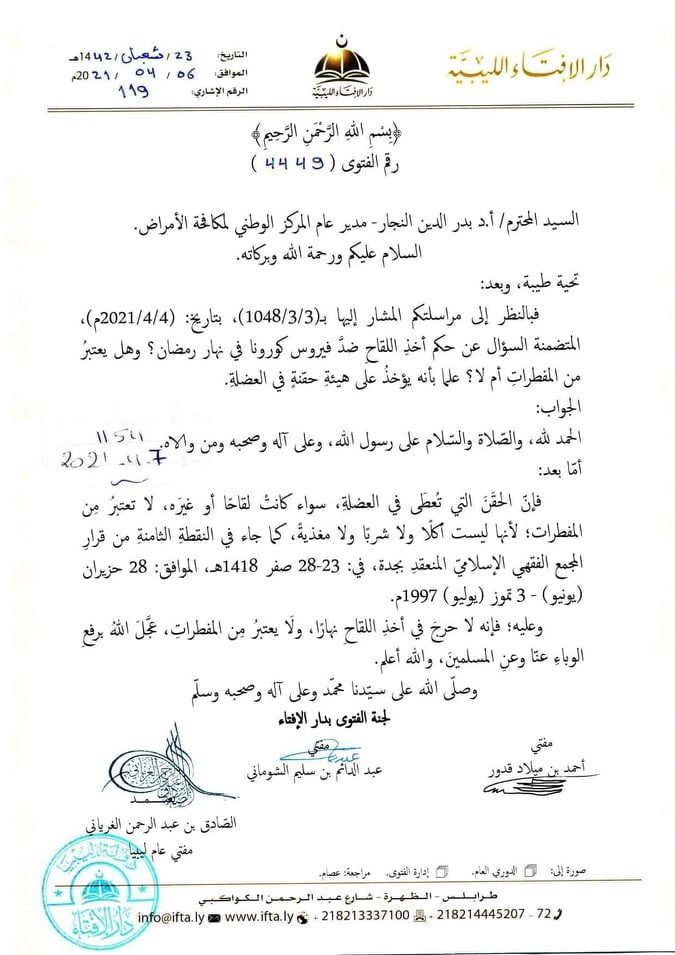 دار الإفتاء الليبية
دار الإفتاء الليبية
التاريخ: 23/شعبان/1442هـ
الموافق: 06/04/2021م
الرقم الإشاري: 119
﴿بِسْمِ اللهِ الرَّحْمَنِ الرَّحِيمِ﴾
رقم الفتوى (4449)
السيد المحترم/ أ.د بدر الدين النجار- مدير عام المركز الوطني لمكافحة الأمراض.
السلام عليكم ورحمة الله وبركاته.
تحية طيبة، وبعد:
فبالنظر إلى مراسلتكم المشار إليها بـ(1048/3/3)، بتاريخ: (2021/4/4م)،
المتضمنة السؤال عن حكم أخذِ اللقاحِ ضدَّ فيروس كورونا في نهار رمضان؟ وهل يعتبرُ
من المفطراتِ أم لا؟ علما بأنه يؤخذُ على هيئةِ حقنةٍ في العضلةِ.
الجواب:
الحمد لله، والصّلاة والسّلام على رسول الله، وعلى آله وصحبه ومن والاه.
1154
2021-4-7
أمّا بعد:
فإنّ الحقَنَ التي تُعطَى في العضلةِ، سواء كانتْ لقاحًا أو غيرَه، لا تعتبرُ مِن
المفطراتِ؛ لأنها ليست أكلًا ولا شربًا ولا مغذيةً، كما جاء في النقطةِ الثامنةِ من قرارِ
المجمع الفقهي الإسلاميّ المنعقدِ بجدة، في: 23-28 صفر 1418هـ، الموافق: 28 حزيران
(يونيو) - 3 تموز (يوليو) 1997م.
وعليه؛ فإنه لا حرجَ في أخذِ اللقاح نهارًا، ولَا يعتبرُ مِن المفطراتِ، عجَّلَ اللهُ برفعِ
الوباءِ عنّا وعنِ المسلمينَ، والله أعلم.
وصلّى الله على سيّدنا محمّد وعلى آله وصحبه وسلّم
لجنة الفتوى بدار الإفتاء
مفتي
أحمد بن ميلاد قدور
مفتي
عبد الدائم بن سليم الشوماني
يعتمد
الصّادق بن عبد الرحمن الغرياني
مفتي عام ليبيا
صورة إلى: الدوري العام. إدارة الفتوى. مراجعة: عصام.
طرابلس - الظهرة - شارع عبد الرحمن الكواكبي
info@ifta.ly www.ifta.ly + 218213337100 + 218214445207 - 72
دولة ليبيا
دار الإفتاء